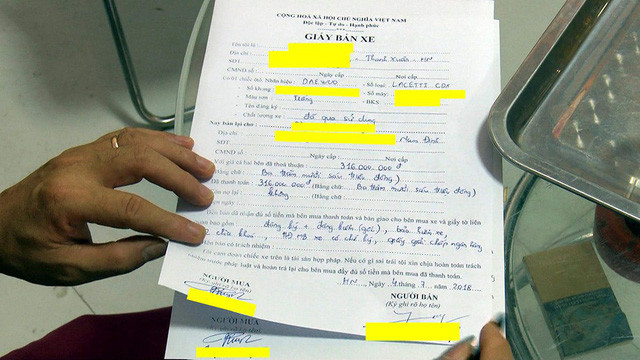 CỘNG HOÀ XÃ HỘI CHỦ NGHĨA VIỆT NAM
Độc lập - Tự do - Hạnh phúc
GIẤY BÁN XE
Tên tôi là :
Địa chỉ : - Thanh Xuân - HN
SĐT
CMND số : Ngày cấp Nơi cấp
Có 01 chiếc ôtô Nhãn hiệu : DAEWOO - Số loại : LACETTI CDX
- Số khung : - Số máy :
- Màu sơn : Trắng - BKS :
- Tên đăng ký
- Chất lượng xe : đã qua sử dụng
Nay bán lại cho :
Địa chỉ : Nam Định
SĐT
CMND số : Ngày cấp : Nơi cấp
Với giá cả hai bên đã thoả thuận : 316.000.000đ
Bằng chữ : Ba trăm mười sáu triệu đồng)
Đã thanh toán : 316.000.000đ (Bằng chữ : Ba trăm mười sáu triệu đồng)
còn nợ lại : không (Bằng chữ :
ngày :
Bên bán đã nhận đủ số tiền mà bên mua thanh toán và bàn giao cho bên mua xe và giấy tờ liên
quan bao gồm : đăng ký + đăng kiểm (gốc), bảo hiểm xe,
chìa khoá, xe có chữ ký, giấy ngân hàng
Bên bán có trách nhiệm :
Tôi cam đoan chiếc xe trên là tài sản hợp pháp. Nếu có gì sai trái tôi xin chịu hoàn toàn trách
nhiệm trước pháp luật và hoàn trả lại cho bên mua đầy đủ số tiền mà bên mua đã thanh toán.
HN, Ngày 4 tháng 7 năm 2018
NGƯỜI MUA
(Ký ghi rõ họ tên)
NGƯỜI BÁN
(Ký ghi rõ họ tên)
NGƯỜI MUA
(Ký ghi rõ họ tên)